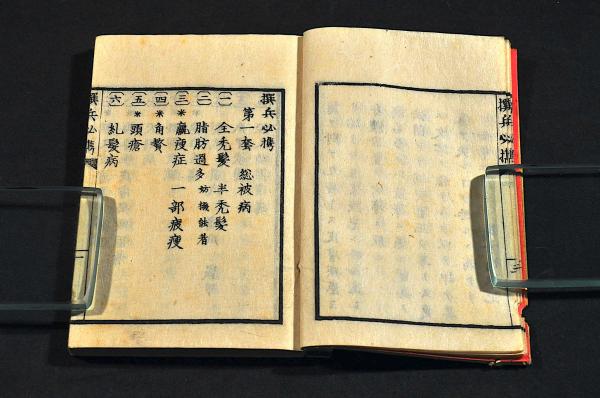 撰兵必携
三
撰兵必携
第一套 総被病
㈠ 全禿髪 半禿髪
㈡ 脂肪過多 妨機能者
㈢ *羸痩症 一部疲痩
㈣ *角贅
㈤ *頭瘡
㈥ 糺髪病
撰兵必携
一